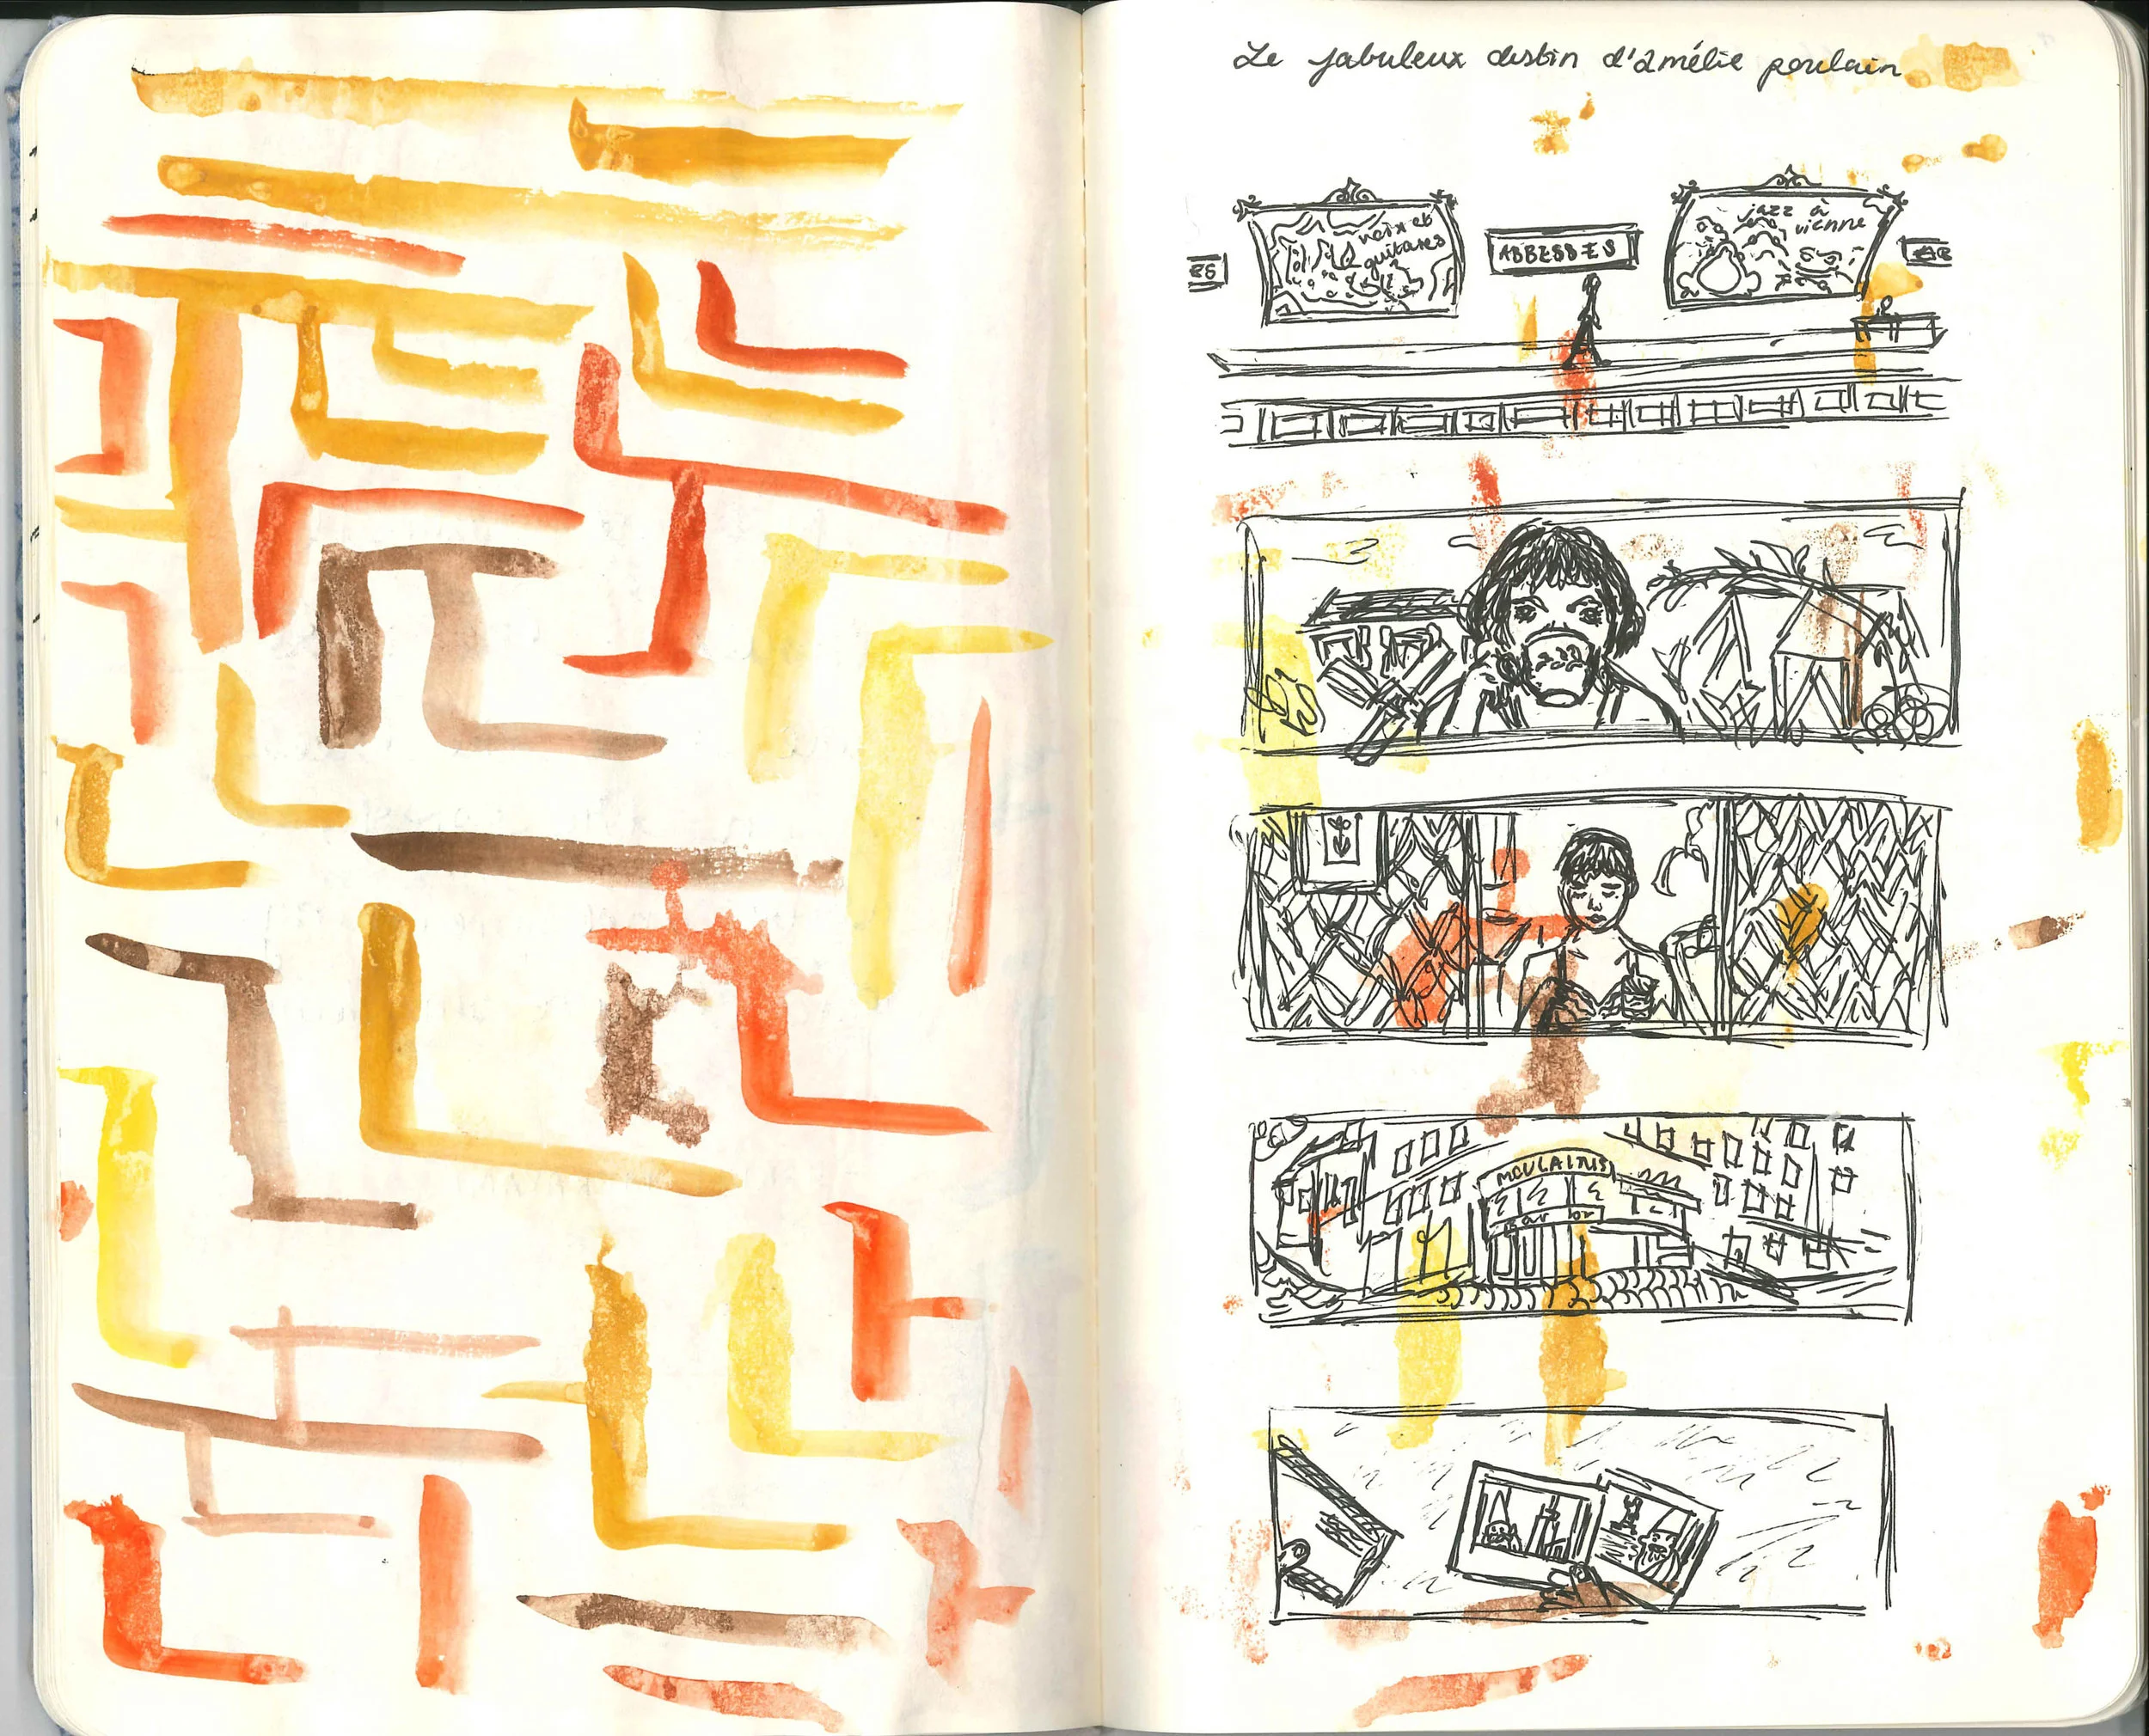 Le fabuleux destin d'Amélie poulain
voix et
guitares
ABBESSES
jazz à
vienne
ES
AB
MOULAINS
bar